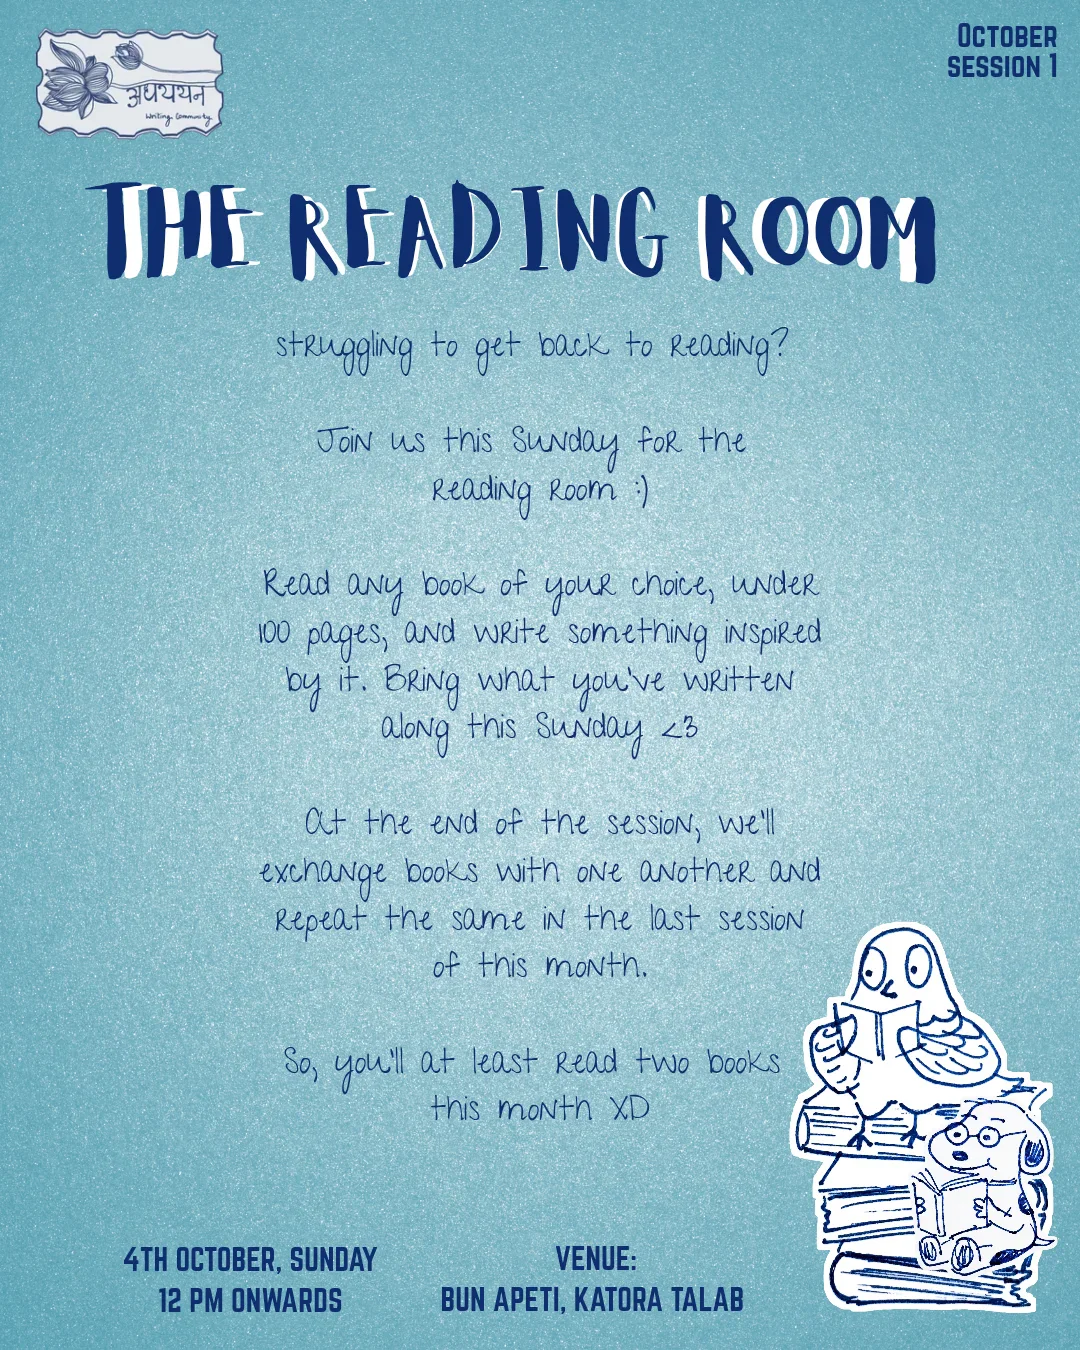 अधययन
Writing Community
OCTOBER
SESSION 1
THE READING ROOM
struggling to get back to reading?
Join us this Sunday for the
reading room :)
Read any book of your choice, under
100 pages, and write something inspired
by it. Bring what you've written
along this Sunday <3
At the end of the session, we'll
exchange books with one another and
repeat the same in the last session
of this month.
So, you'll at least read two books
this month XD
4TH OCTOBER, SUNDAY
12 PM ONWARDS
VENUE:
BUN APETI, KATORA TALAB